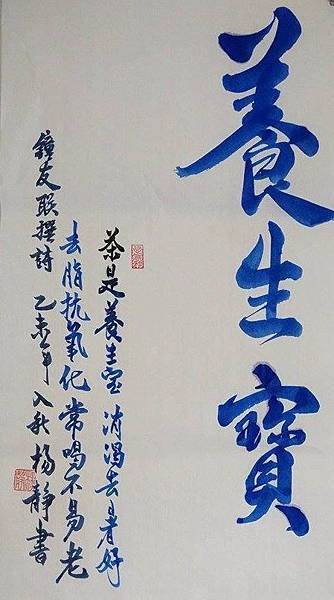 養生寶
茶是養生宝 消渴去暑好
去脂抗氧化 常喝不易老
鐘友联撰詩 乙未年入秋楊静書